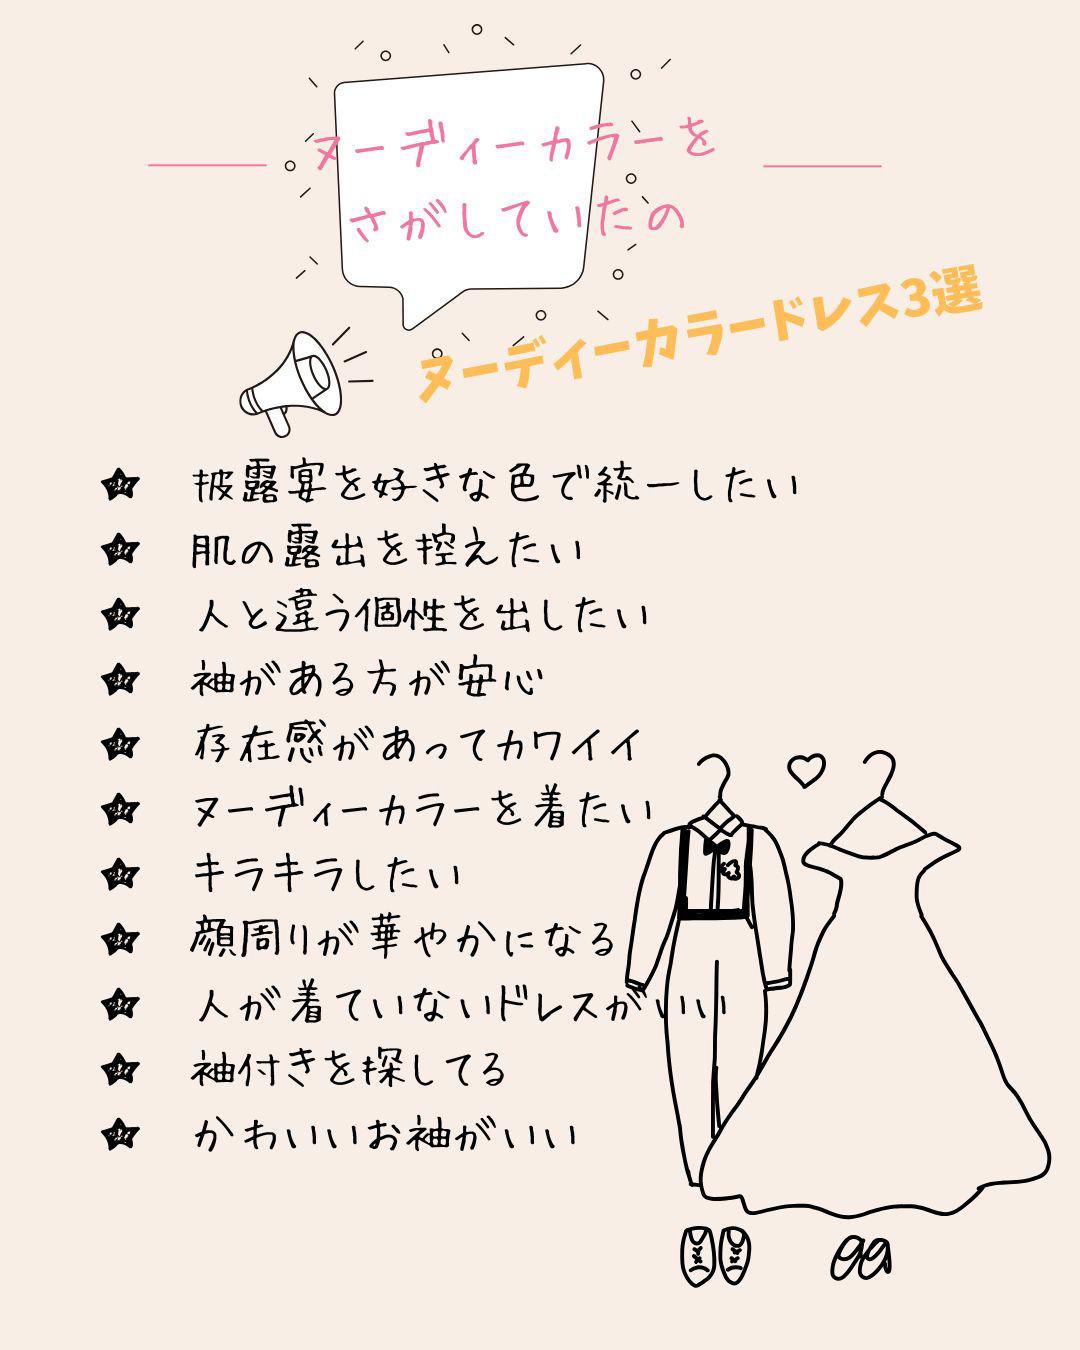 ヌーディーカラーを
さがしていたの
ヌーディーカラードレス3選
披露宴を好きな色で統一したい
肌の露出を控えたい
人と違う個性を出したい
袖がある方が安心
存在感があってカワイイ
ヌーディーカラーを着たい
キラキラしたい
顔周りが華やかになる
人が着ていないドレスがいい
袖付きを探してる
かわいいお袖がいい